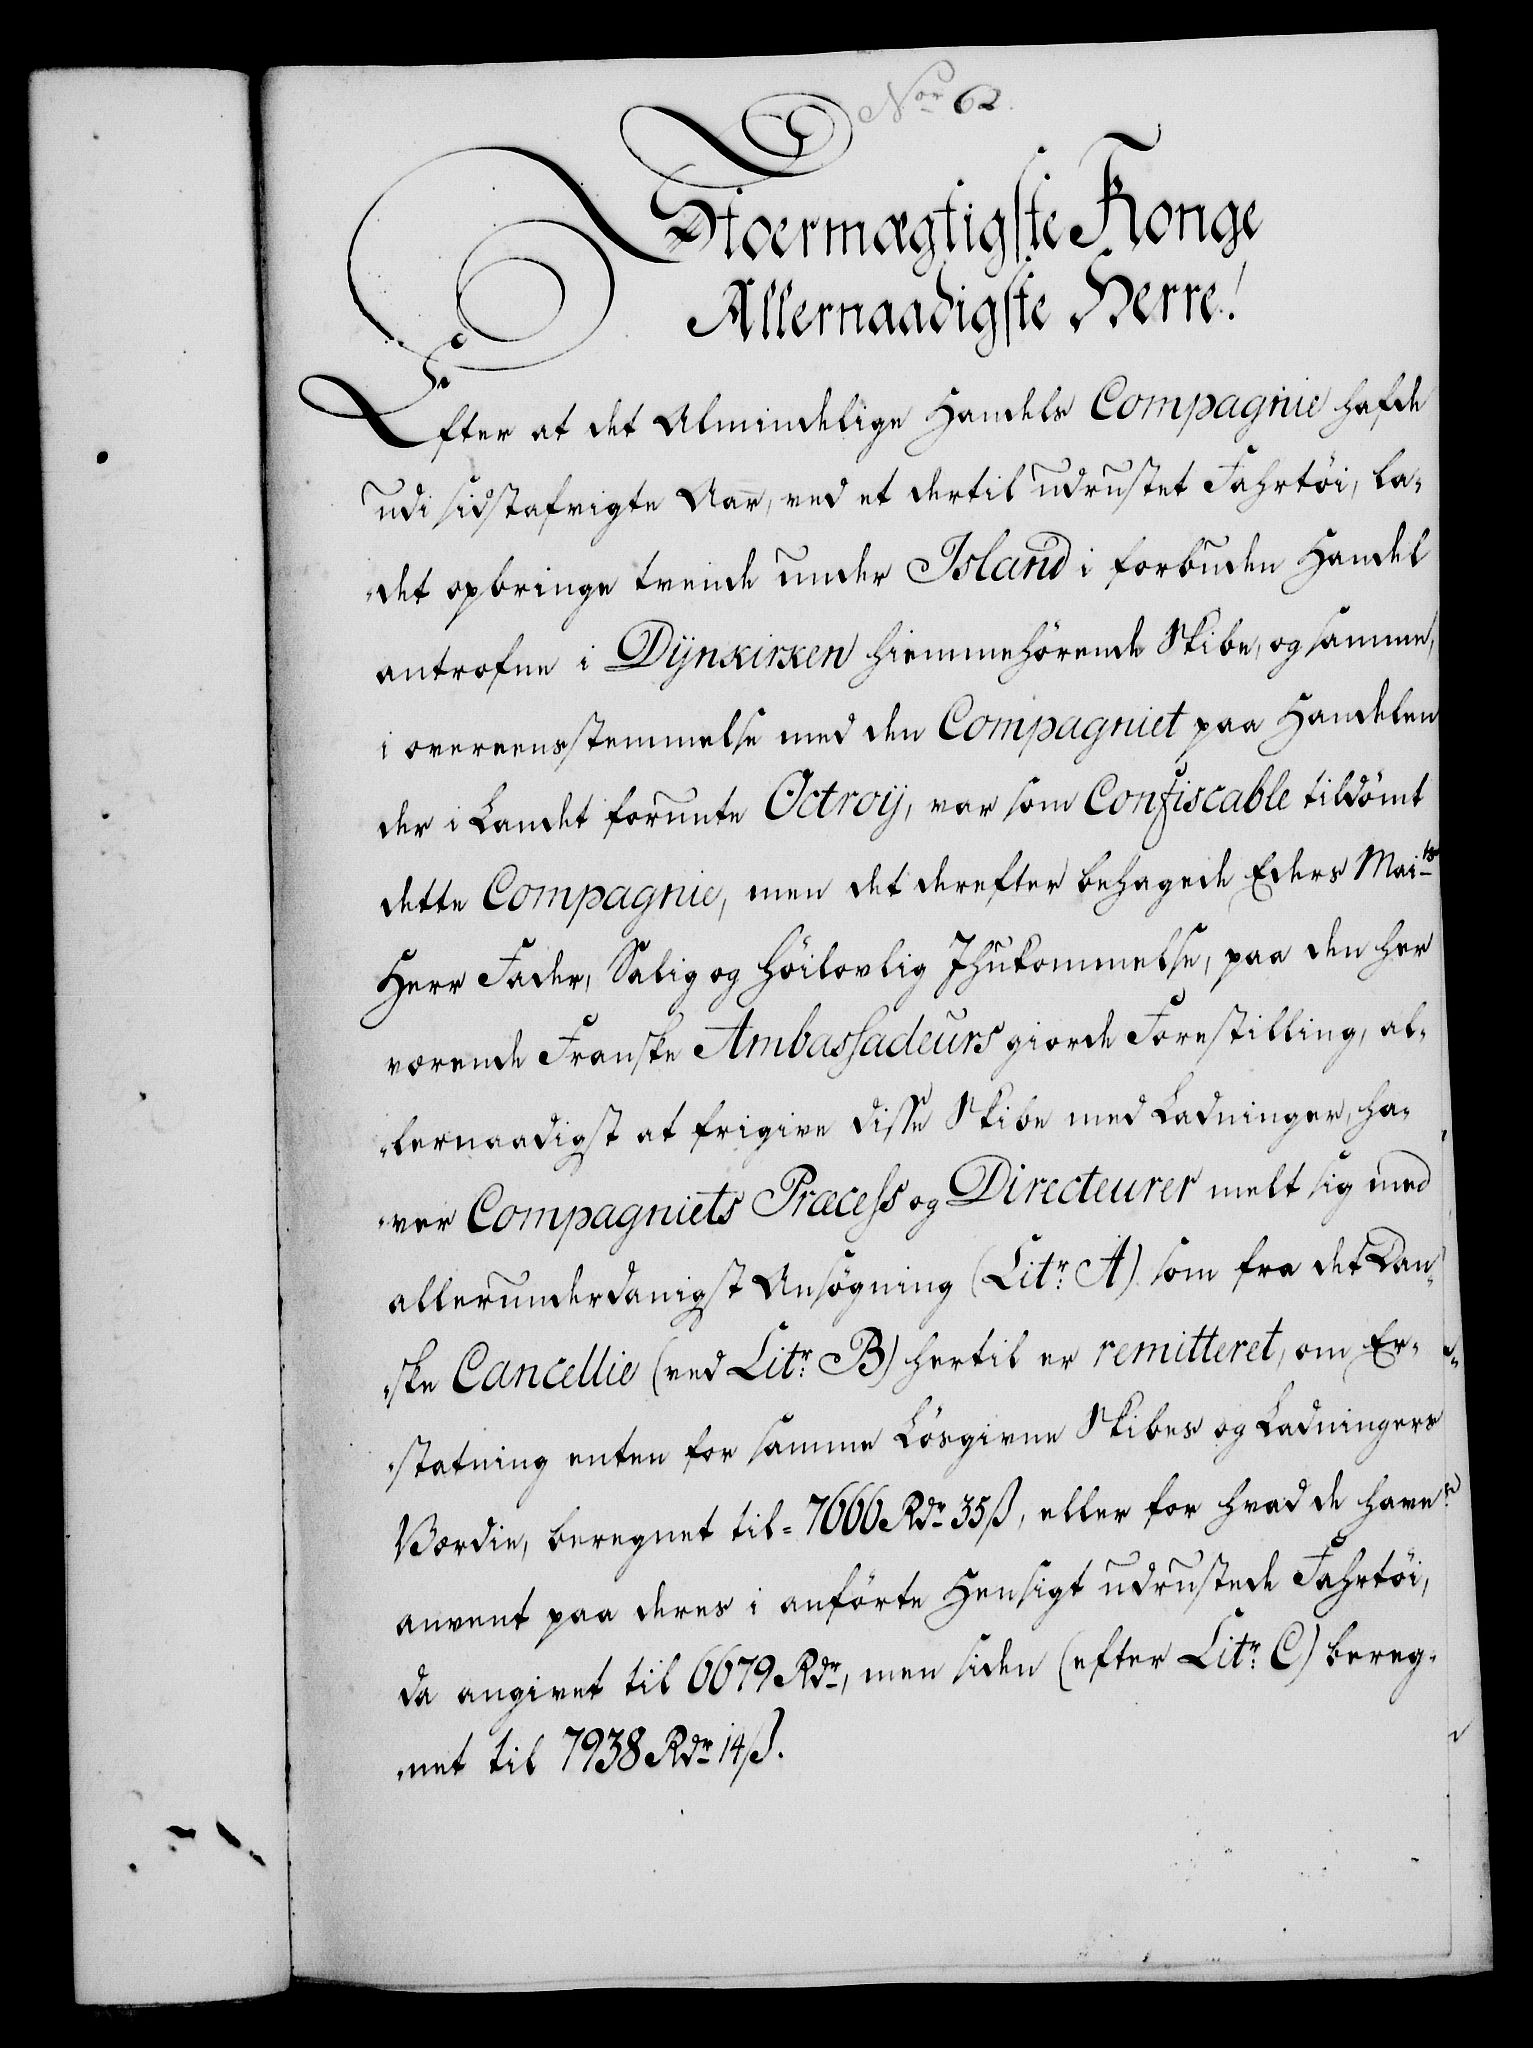 Nor 62.
Stoermægtigste Konge
Allernaadigste Herre!
Efter at det Almindelige Handels Compagnie hafde
udi sidstafvigte Aar, ved et dertil udrustet Fahrtöi, la-
det opbringe tvende under Island i forbuden Handel
antrofne i Dÿnkirken hiemmehörende Skibe, og samme,
i overeensstemmelse med den Compagniet paa Handelen
der i Landet forunte Octroij, var som Confiscable tildömt
dette Compagnie, men det derefter behagede Eders Maits
Herr Fader, Salig og Höilovlig Ihukommelse, paa den her
værende Franske Ambassadeurs giorde Forestilling, al-
lernaadigst at frigive disse Skibe med Ladninger, ha-
ver Compagniets Præcess og Directeurer melt sig med
allerunderdanigst Ansögning (Litr. A) som fra det Dan-
ske Cancellie (ved Litr. B) hertil er remitteret, om Er-
statning enten for samme Lösgivne Skibes og Ladningers
Værdie, beregnet til 7666 Rdr 35 ß, eller for hvad de have
anvent paa deres i anförte Hensigt udrustede Fahrtöi,
da angivet til 6679 Rdr, men siden (efter Litr. C) bereg-
net til 7938 Rdr 14 ß.